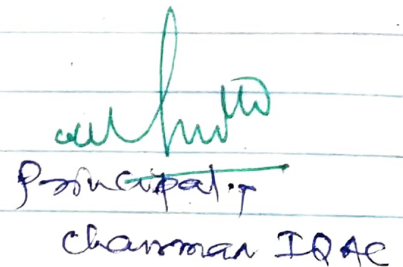 Principal.,
Chairman IQAC